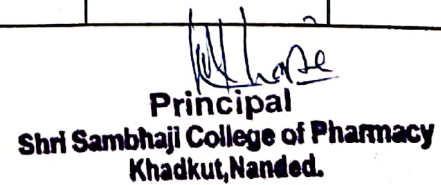 Principal
Shri Sambhaji College of Pharmacy
Khadkut,Nanded.